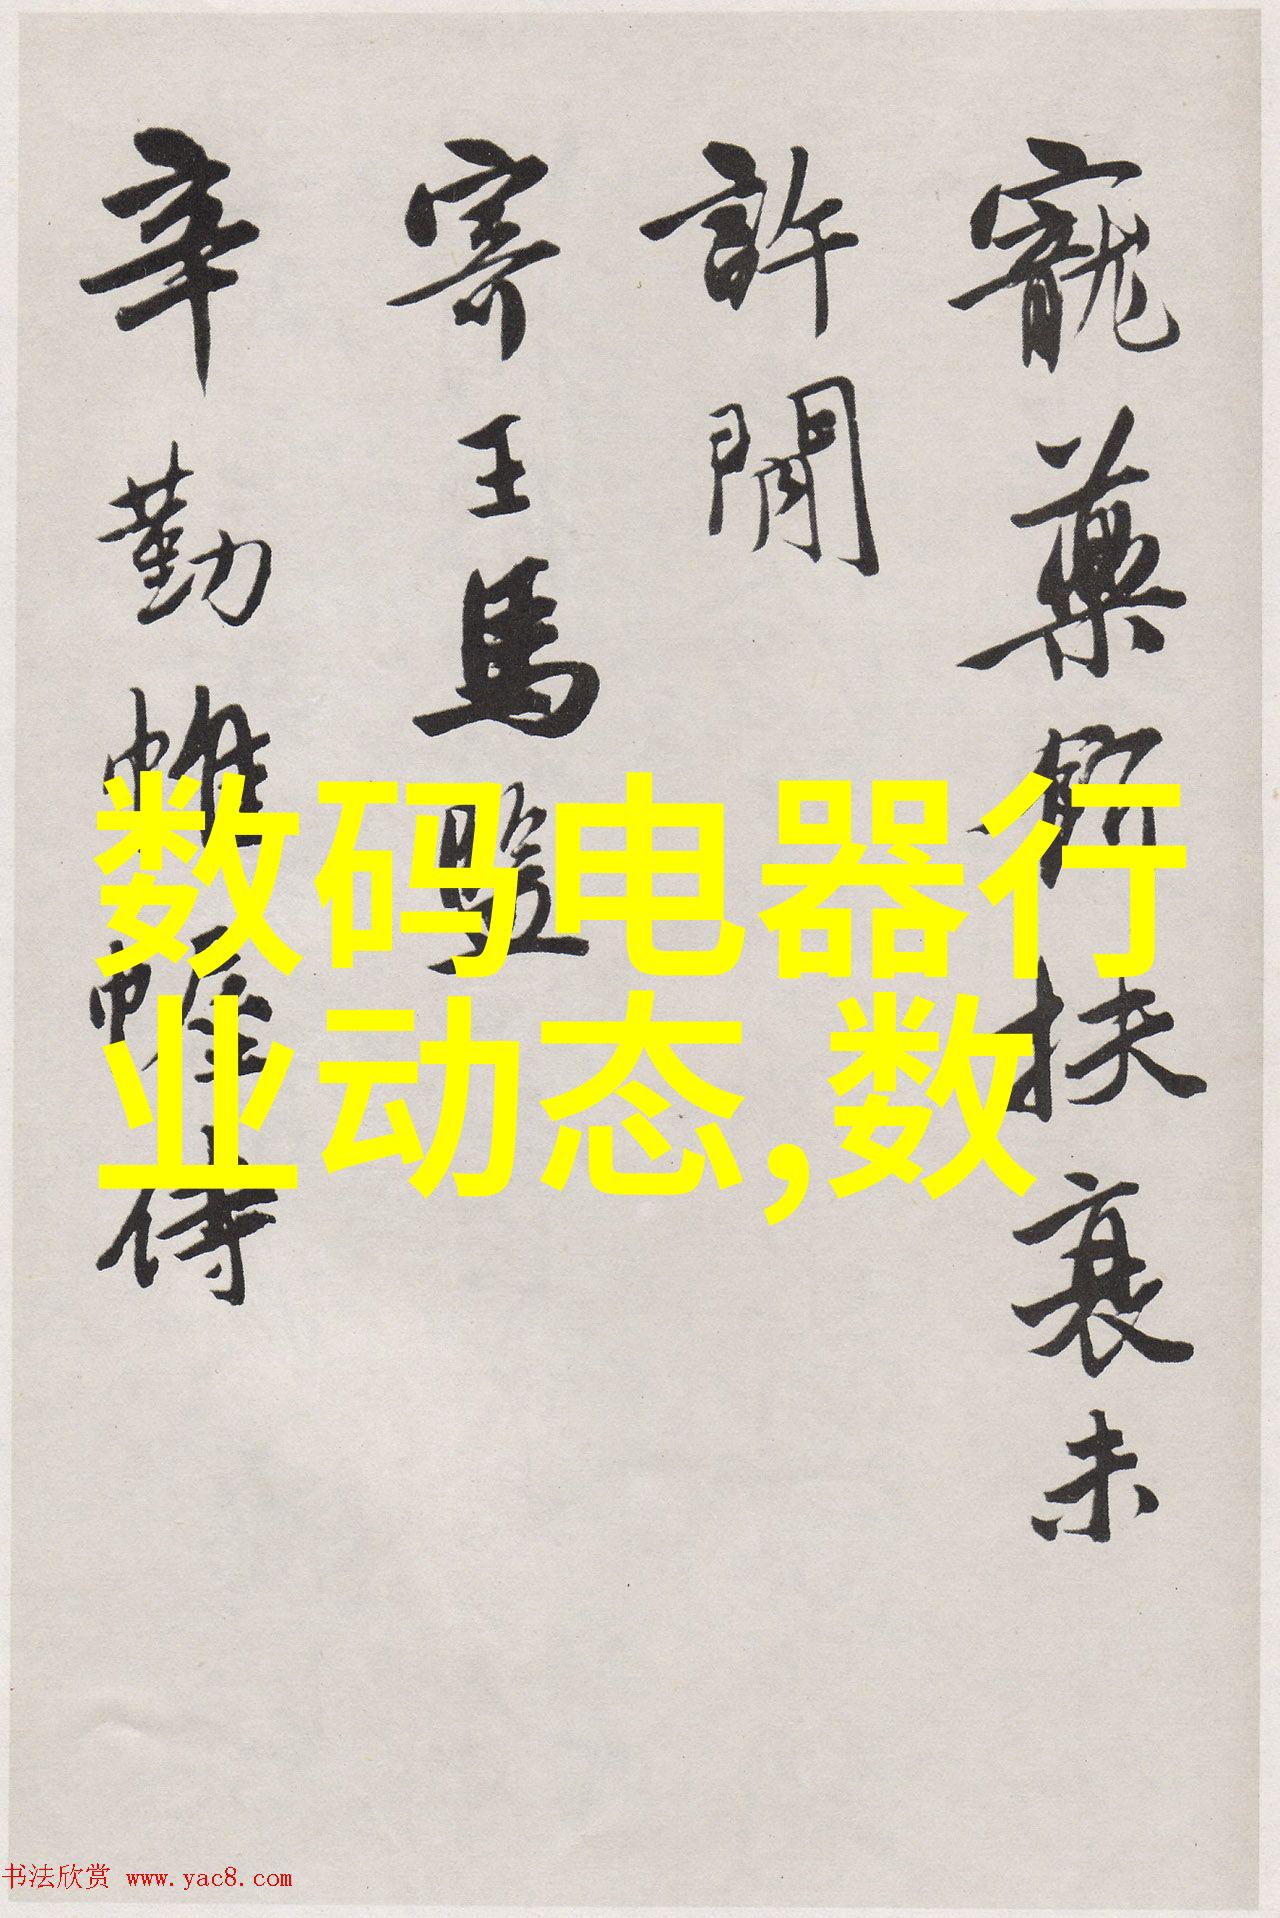 寵藥餌扶衰未
許閒
寄王馬監
辛勤帷幄侍
数码电器行
业动态,数
书法欣赏 www.yac8.com